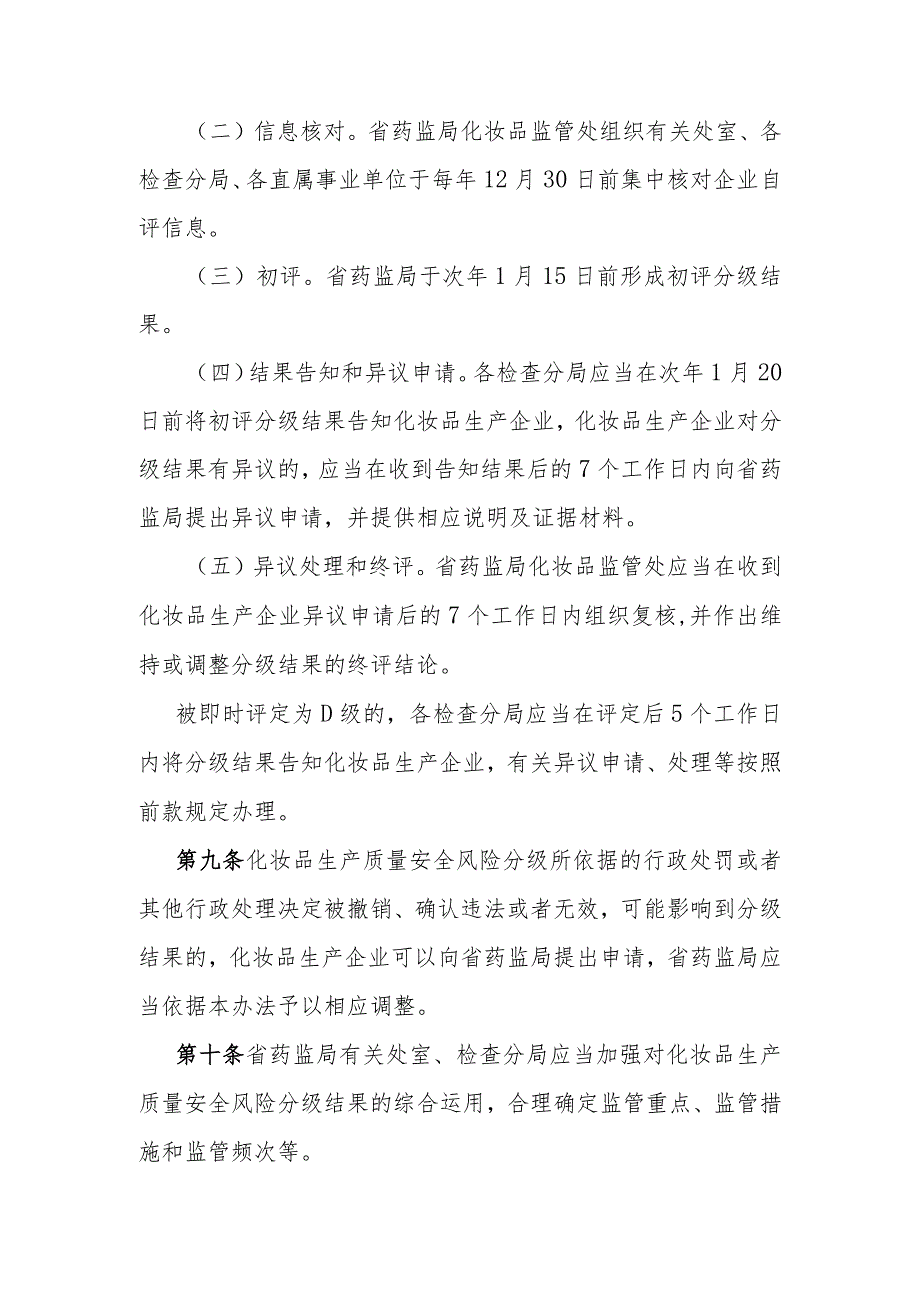 （二）信息核对。省药监局化妆品监管处组织有关处室、各
检查分局、各直属事业单位于每年 12 月 30 日前集中核对企业自
评信息。
（三）初评。省药监局于次年 1 月 15 日前形成初评分级结
果。
（四）结果告知和异议申请。各检查分局应当在次年 1 月 20
日前将初评分级结果告知化妆品生产企业，化妆品生产企业对分
级结果有异议的，应当在收到告知结果后的 7 个工作日内向省药
监局提出异议申请，并提供相应说明及证据材料。
（五）异议处理和终评。省药监局化妆品监管处应当在收到
化妆品生产企业异议申请后的 7 个工作日内组织复核,并作出维
持或调整分级结果的终评结论。
被即时评定为 D 级的，各检查分局应当在评定后 5 个工作日
内将分级结果告知化妆品生产企业，有关异议申请、处理等按照
前款规定办理。
第九条化妆品生产质量安全风险分级所依据的行政处罚或者
其他行政处理决定被撤销、确认违法或者无效，可能影响到分级
结果的，化妆品生产企业可以向省药监局提出申请，省药监局应
当依据本办法予以相应调整。
第十条省药监局有关处室、检查分局应当加强对化妆品生产
质量安全风险分级结果的综合运用，合理确定监管重点、监管措
施和监管频次等。